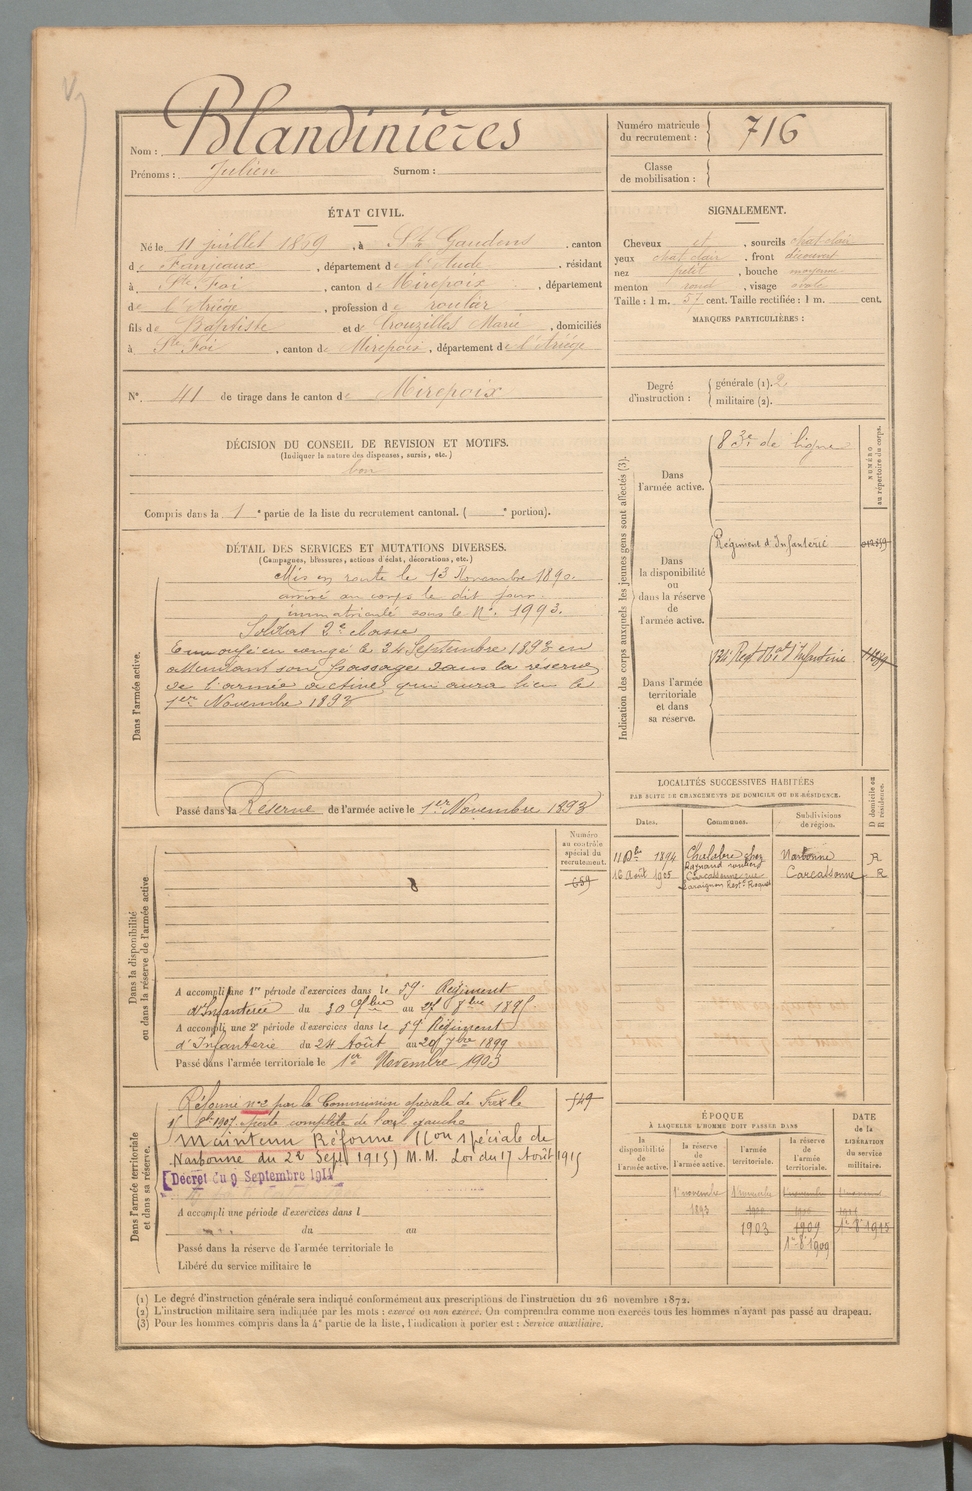 Nom : Blandinières
Prénoms : Julien Surnom :
Numéro matricule du recrutement : 716
Classe de mobilisation :
ÉTAT CIVIL.
Né le 11 juillet 1869, à St Gaudens, canton
de Fanjeaux, département de l'Aude, résidant
à Ste Foi, canton de Mirepoix, département
de l'Ariège, profession de roulier
fils de Baptiste et de Crouzilles Marie, domiciliés
à Ste Foi, canton de Mirepoix, département de l'Ariège
N° 41 de tirage dans le canton de Mirepoix
SIGNALEMENT.
Cheveux et, sourcils chat clair
yeux chat clair, front découvert
nez petit, bouche moyenne
menton rond, visage ovale
Taille : 1 m. 57 cent. Taille rectifiée : 1 m. cent.
MARQUES PARTICULIÈRES :
Degré d'instruction : générale (1). 2
militaire (2).
DÉCISION DU CONSEIL DE REVISION ET MOTIFS.
(Indiquer la nature des dispenses, sursis, etc.)
bon
Compris dans la 1e partie de la liste du recrutement cantonal. ( e portion).
DÉTAIL DES SERVICES ET MUTATIONS DIVERSES.
(Campagnes, blessures, actions d'éclat, décorations, etc.)
Dans l'armée active.
Mis en route le 13 Novembre 1890.
arrivé au corps le dit jour.
immatriculé sous le N° 1993.
Soldat 2e classe
Envoyé en congé le 24 Septembre 1893 en
attendant son passage dans la réserve
de l'armée active qui aura lieu le
1er Novembre 1893
Passé dans la Réserve de l'armée active le 1er Novembre 1893
Indication des corps auxquels les jeunes gens sont affectés (3).
NUMÉRO au répertoire du corps.
Dans l'armée active.
83e de ligne
Dans la disponibilité ou dans la réserve de l'armée active.
Régiment d'Infanterie
Dans l'armée territoriale et dans sa réserve.
134e Regt d'Infanterie
LOCALITÉS SUCCESSIVES HABITÉES
PAR SUITE DE CHANGEMENTS DE DOMICILE OU DE RÉSIDENCE.
Dates. Communes. Subdivisions de région. D domicile ou R résidence.
1894 Chalabre chez Narbonne R
16 Août 1905 Carcassonne rue Carcassonne R
Dans la disponibilité ou dans la réserve de l'armée active
Numéro au contrôle spécial du recrutement.
659
A accompli une 1re période d'exercices dans le 59e Régiment
d'Infanterie du 30 7bre au 27 8bre 1895
A accompli une 2e période d'exercices dans le 59e Régiment
d'Infanterie du 24 Août au 20 7bre 1899
Passé dans l'armée territoriale le 1er Novembre 1903
Dans l'armée territoriale et dans sa réserve.
Réformé n°2 par la Commission spéciale de Foix le
1907 perte complète de l'œil gauche
549
Maintenu Réformé (Con spéciale de
Narbonne du 22 Sept 1915) M.M. Loi du 17 Août 1915
Décret du 9 Septembre 1914
A accompli une période d'exercices dans l
du au
Passé dans la réserve de l'armée territoriale le
Libéré du service militaire le
ÉPOQUE
À LAQUELLE L'HOMME DOIT PASSER DANS
la disponibilité de l'armée active. la réserve de l'armée active. l'armée territoriale. la réserve de l'armée territoriale.
DATE de la LIBÉRATION du service militaire.
1er novembre 1893
1903 1909 1er 8bre 1915
1er 8bre 1909
(1) Le degré d'instruction générale sera indiqué conformément aux prescriptions de l'instruction du 26 novembre 1872.
(2) L'instruction militaire sera indiquée par les mots : exercé ou non exercé. On comprendra comme non exercés tous les hommes n'ayant pas passé au drapeau.
(3) Pour les hommes compris dans la 4e partie de la liste, l'indication à porter est : Service auxiliaire.